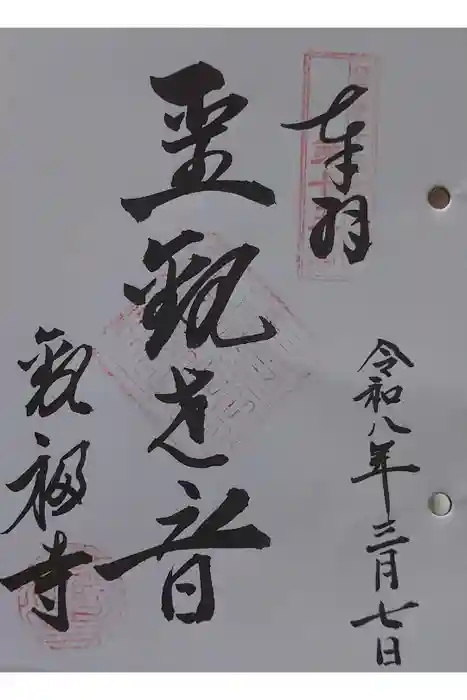 奉拝
令和八年三月七日
聖観世音
観福寺